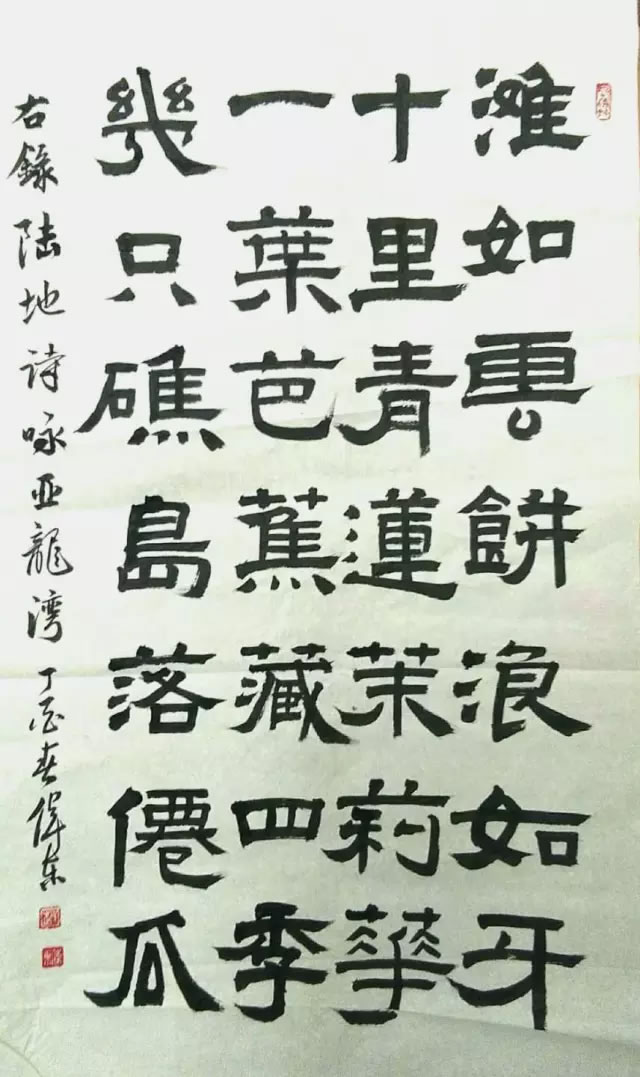 滩如雲餅浪如牙
十里青蓮茉莉華
一葉芭蕉藏四季
幾只礁島落僊瓜
右錄陆地诗咏亚龍湾 丁酉春偉東